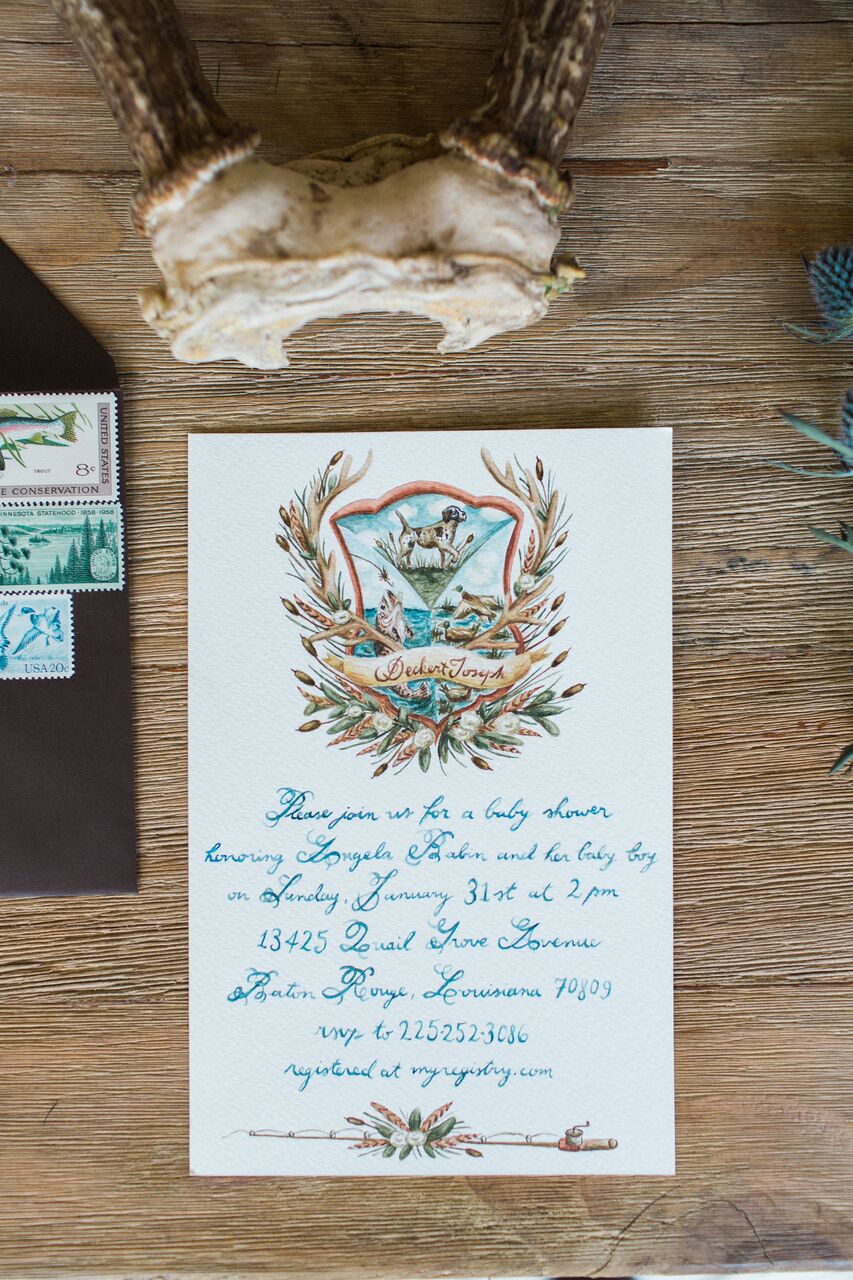 UNITED STATES
TROUT
8c
E CONSERVATION
MINNESOTA STATEHOOD · 1858-1958
3¢
USA 20c
Deckert Joseph
Please join us for a baby shower
honoring Angela Babin and her baby boy
on Sunday, January 31st at 2 pm
13425 Quail Grove Avenue
Baton Rouge, Louisiana 70809
rsvp to 225-252-3086
registered at myregistry.com